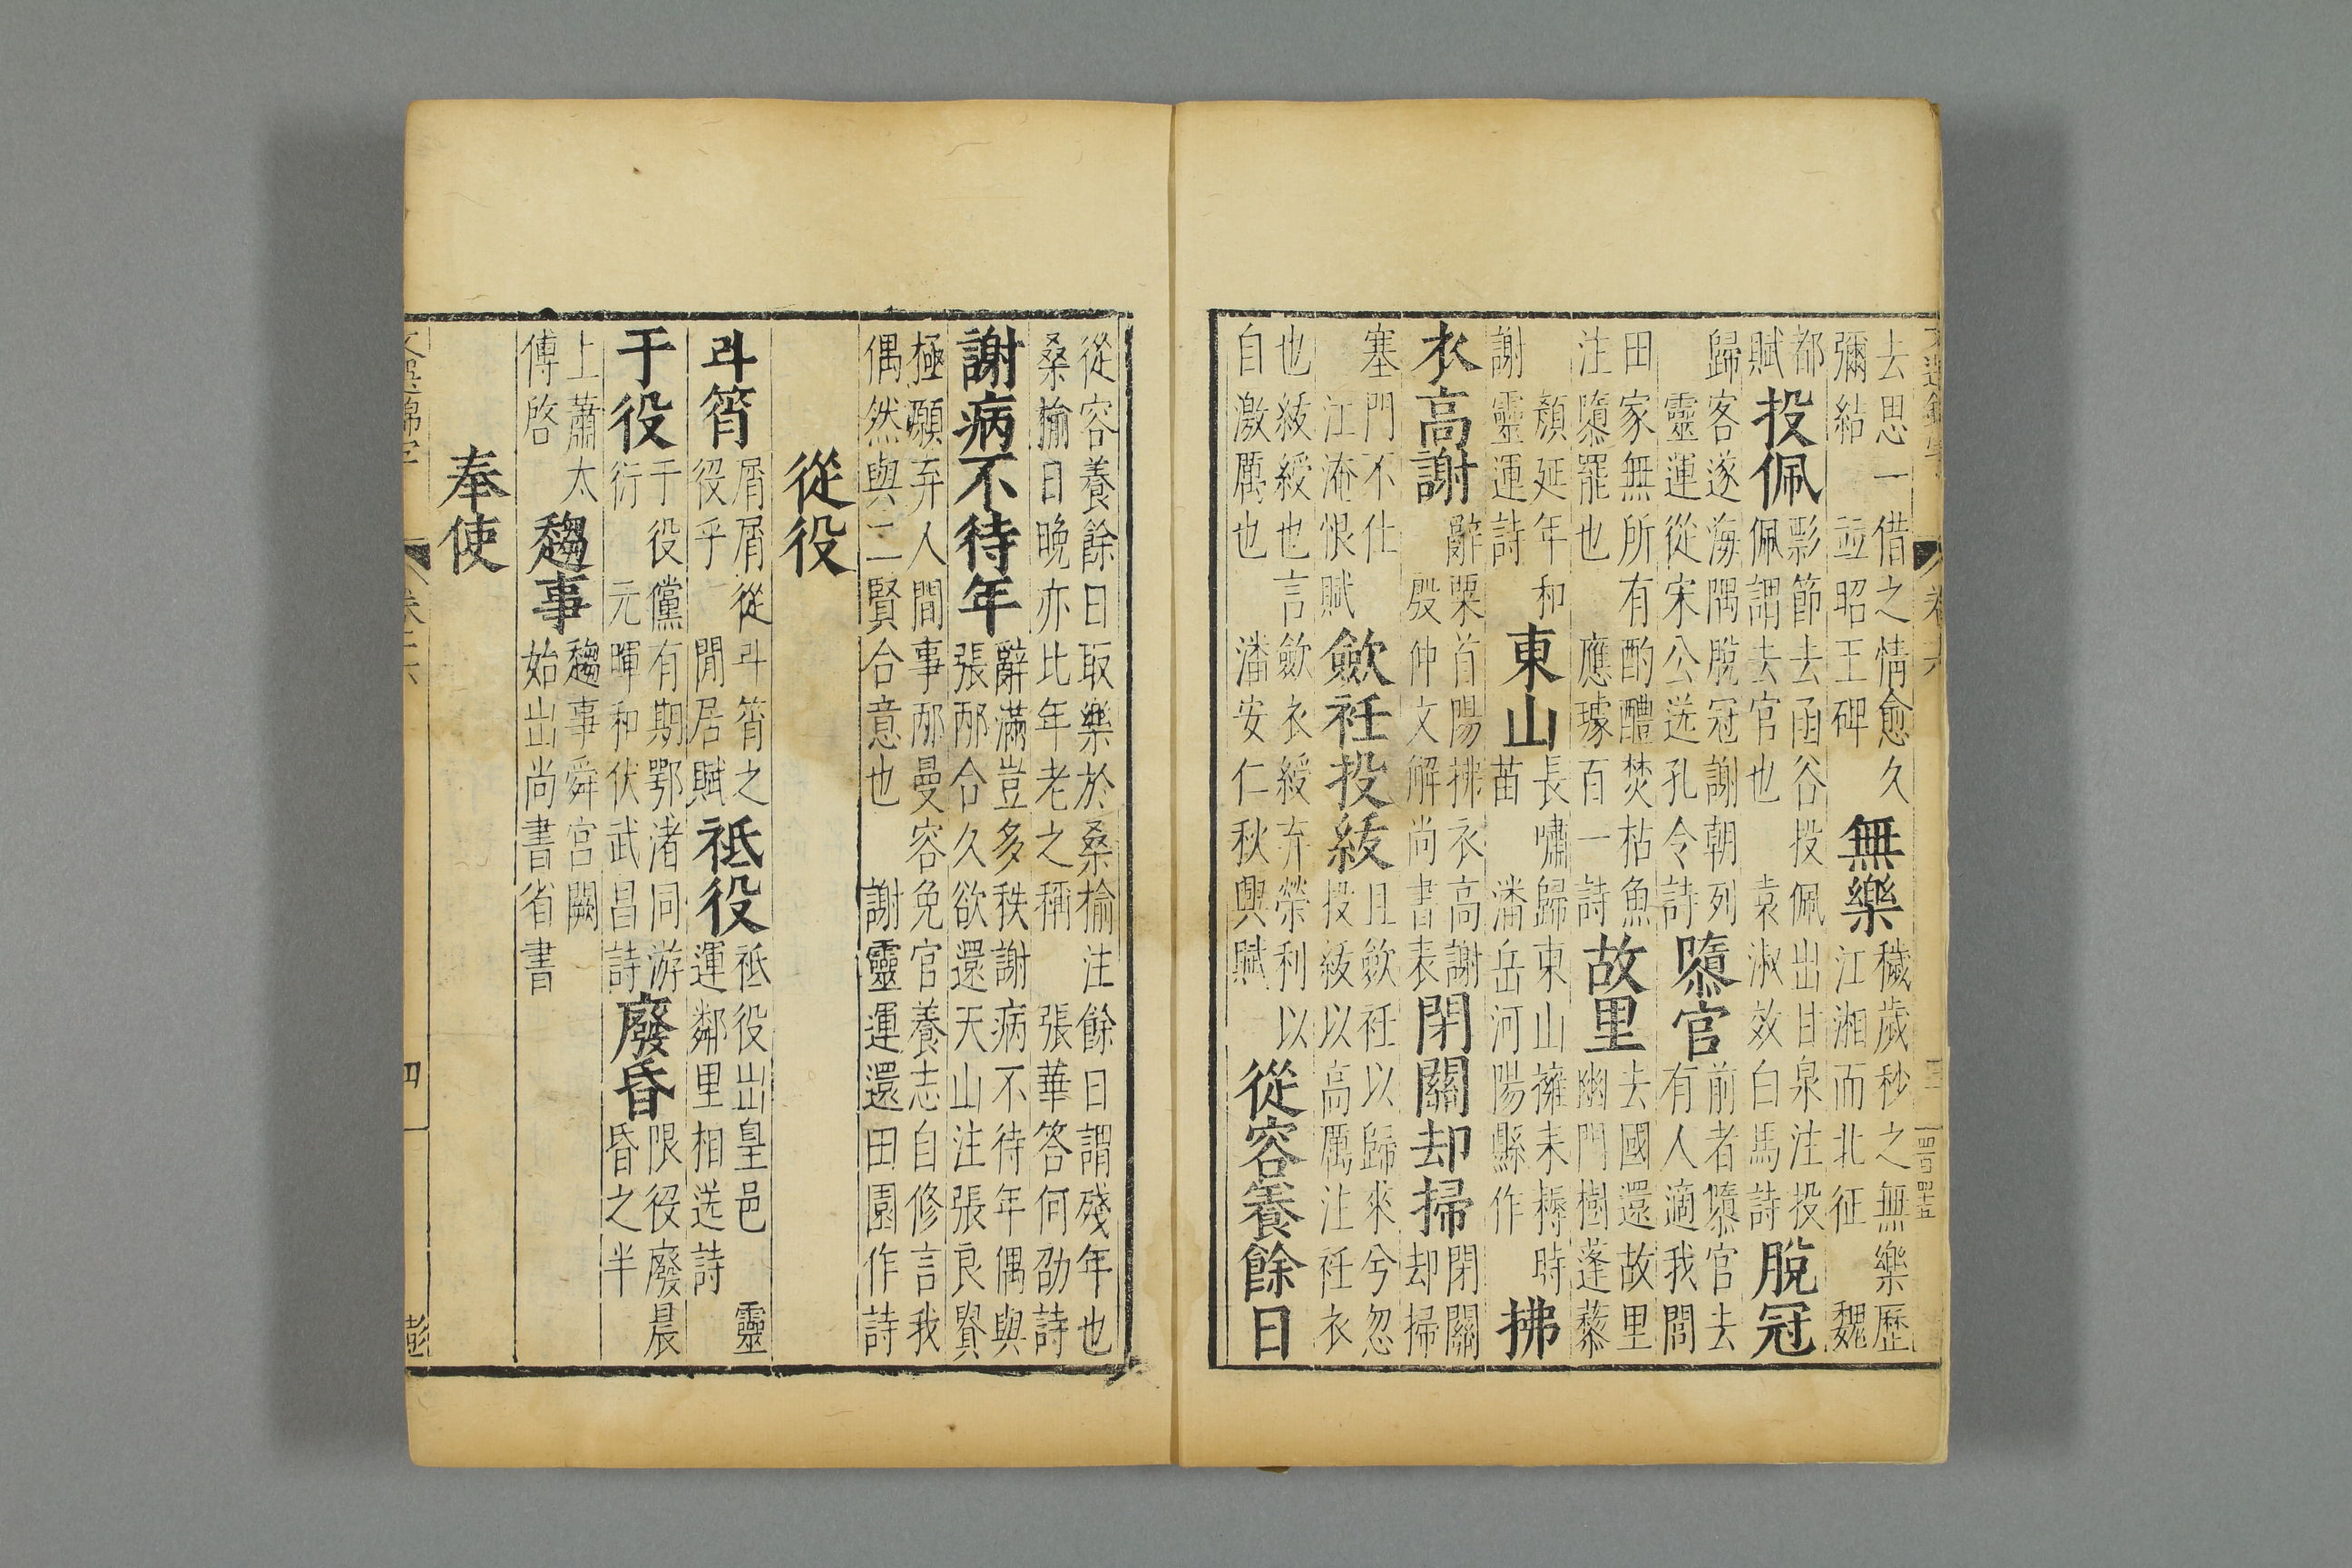 去思一借之情愈久
彌結 並昭王碑
無樂
穢歲秒之無樂歷
江湘而北征 魏
都
賦
投佩
彯節去函谷投佩出甘泉注投
佩謂去官也 袁淑效白馬詩
脫冠
歸客遂海隅脫冠謝朝列
靈運從宋公送孔令詩
隳官
前者隳官去
有人適我閭
田家無所有酌醴焚枯魚
注隳罷也 應璩百一詩
故里
去國還故里
幽門樹蓬藜
顏延年和
謝靈運詩
東山
長嘯歸東山擁耒耨時
苗 潘岳河陽縣作
拂
衣高謝
辭粟首陽拂衣高謝
殷仲文解尚書表
閉關却掃
閉關
却掃
塞門不仕
江淹恨賦
歛衽投紱
且歛衽以歸來兮忽
投紱以高厲注衽衣
也紱綬也言歛衣綬弃榮利以
自激厲也 潘安仁秋興賦
從容養餘日
從容養餘日取樂於桑榆注餘日謂殘年也
桑榆日晚亦比年老之稱 張華答何劭詩
謝病不待年
辭滿豈多秩謝病不待年偶與
張邴合久欲還天山注張良賢
極願弃人間事邴曼容免官養志自修言我
偶然與二賢合意也 謝靈運還田園作詩
從役
斗筲
屑屑從斗筲之
役乎 閒居賦
祗役
祗役出皇邑 靈
運鄰里相送詩
于役
于役儻有期鄂渚同游
衍 元暉和伏武昌詩
廢昏
限役廢晨
昏之半
上蕭太
傅啓
趨事
趨事舜宮闕
始出尚書省書
奉使
四